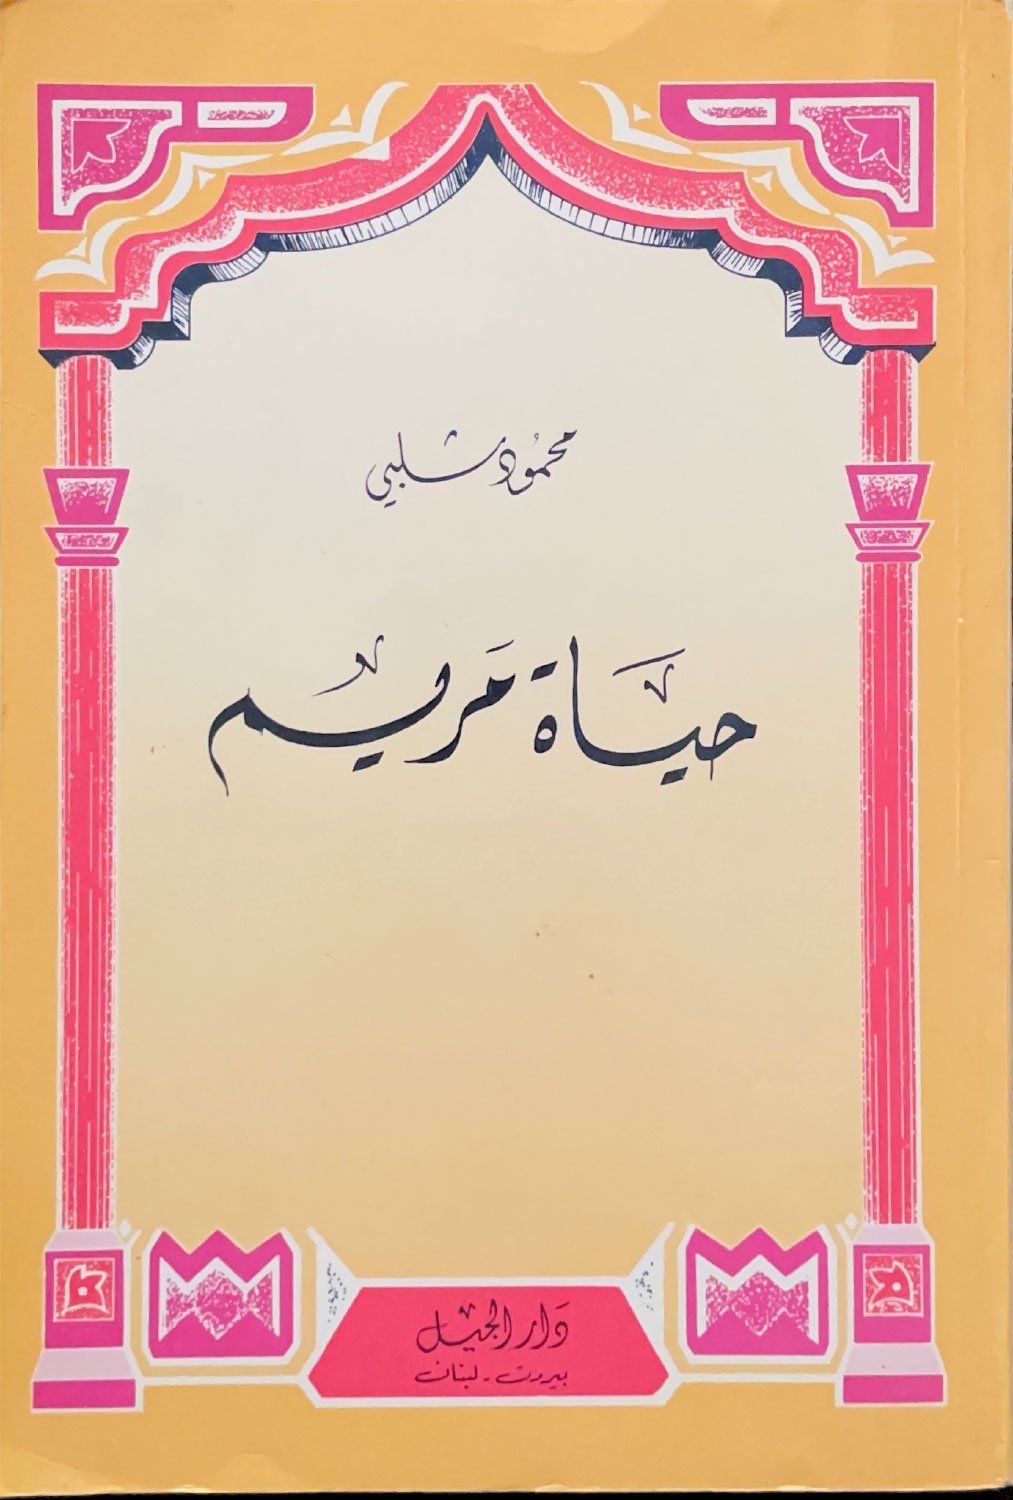 محمُود شلبي
حياة مَريم
دَار الجيل
بيروت - لبنان